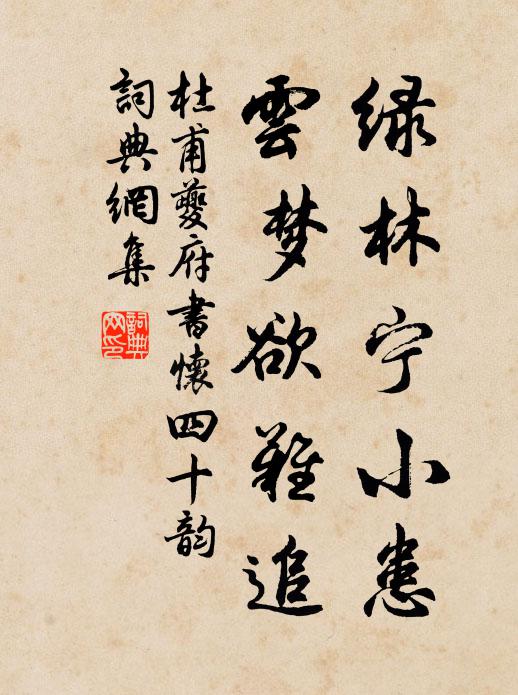 绿林宁小患
雲梦欲難追
杜甫夔府書懷四十韵
詞典網集
詞典网印